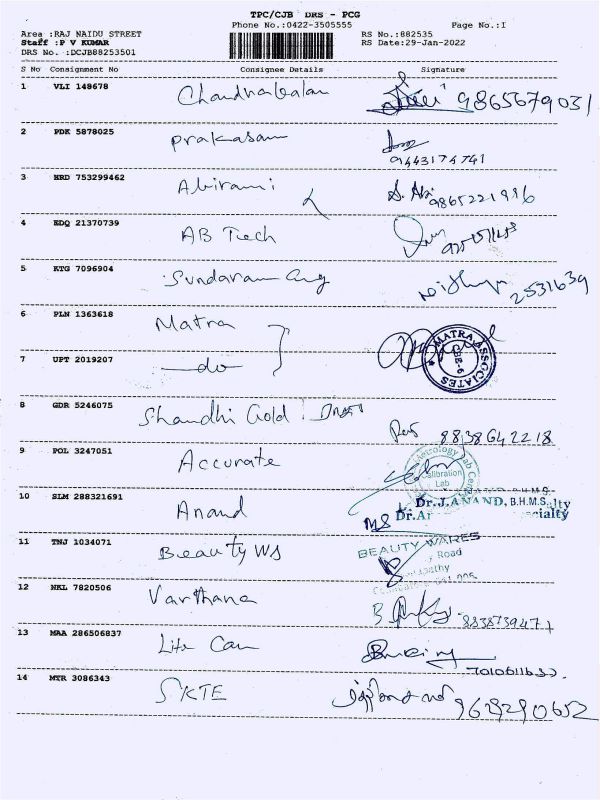 TPC/CJB DRS - PCG
Phone No.:0422-3505555 Page No.:1
Area :RAJ NAIDU STREET RS No.:882535
Staff :P V KUMAR RS Date:29-Jan-2022
DRS No. :DCJB88253501
S No Consignment No Consignee Details Signature
1 VLI 148678 Chandrabalan 9865679031
2 PDK 5878025 Prakasam
9443174741
3 HRD 753299462 Abirami S. Abi 9865221916
4 EDQ 21370739 AB Tech
5 KTG 7096904 Sundaram Eng 2531639
6 PLN 1363618 Matra
MATRA ASSOCIATES CBE-6
7 UPT 2019207 —do—
8 GDR 5246075 Shandhi Gold
8838642218
9 POL 3247051 Accurate
Metrology Lab
Calibration
Lab
10 SLM 288321691 Anand Dr.J.ANAND, B.H.M.S.
11 TNJ 1034071 Beauty WS BEAUTY WARES
Road
12 NKL 7820506 Varthana
8838739471
13 MAA 286506837 Life Can
14 MTR 3086343 SKTE 9629290652